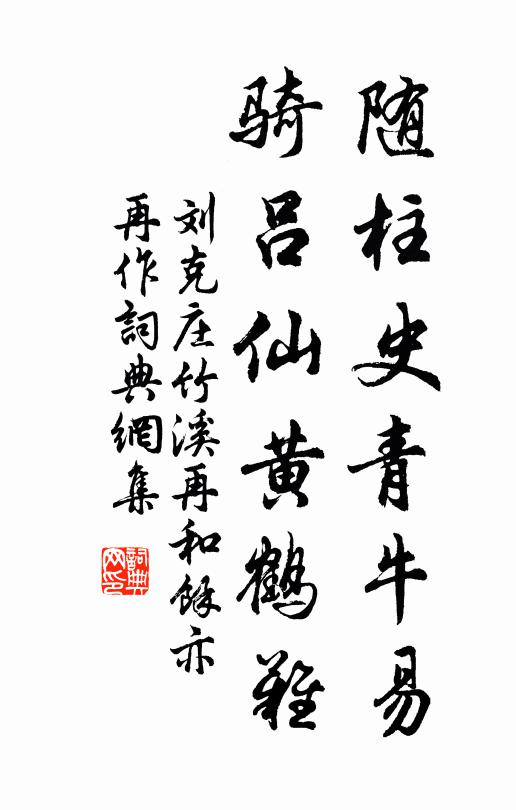 随柱史青牛易
骑吕仙黄鹤难
刘克庄竹溪再和馀亦
再作詞典網集
詞典网印